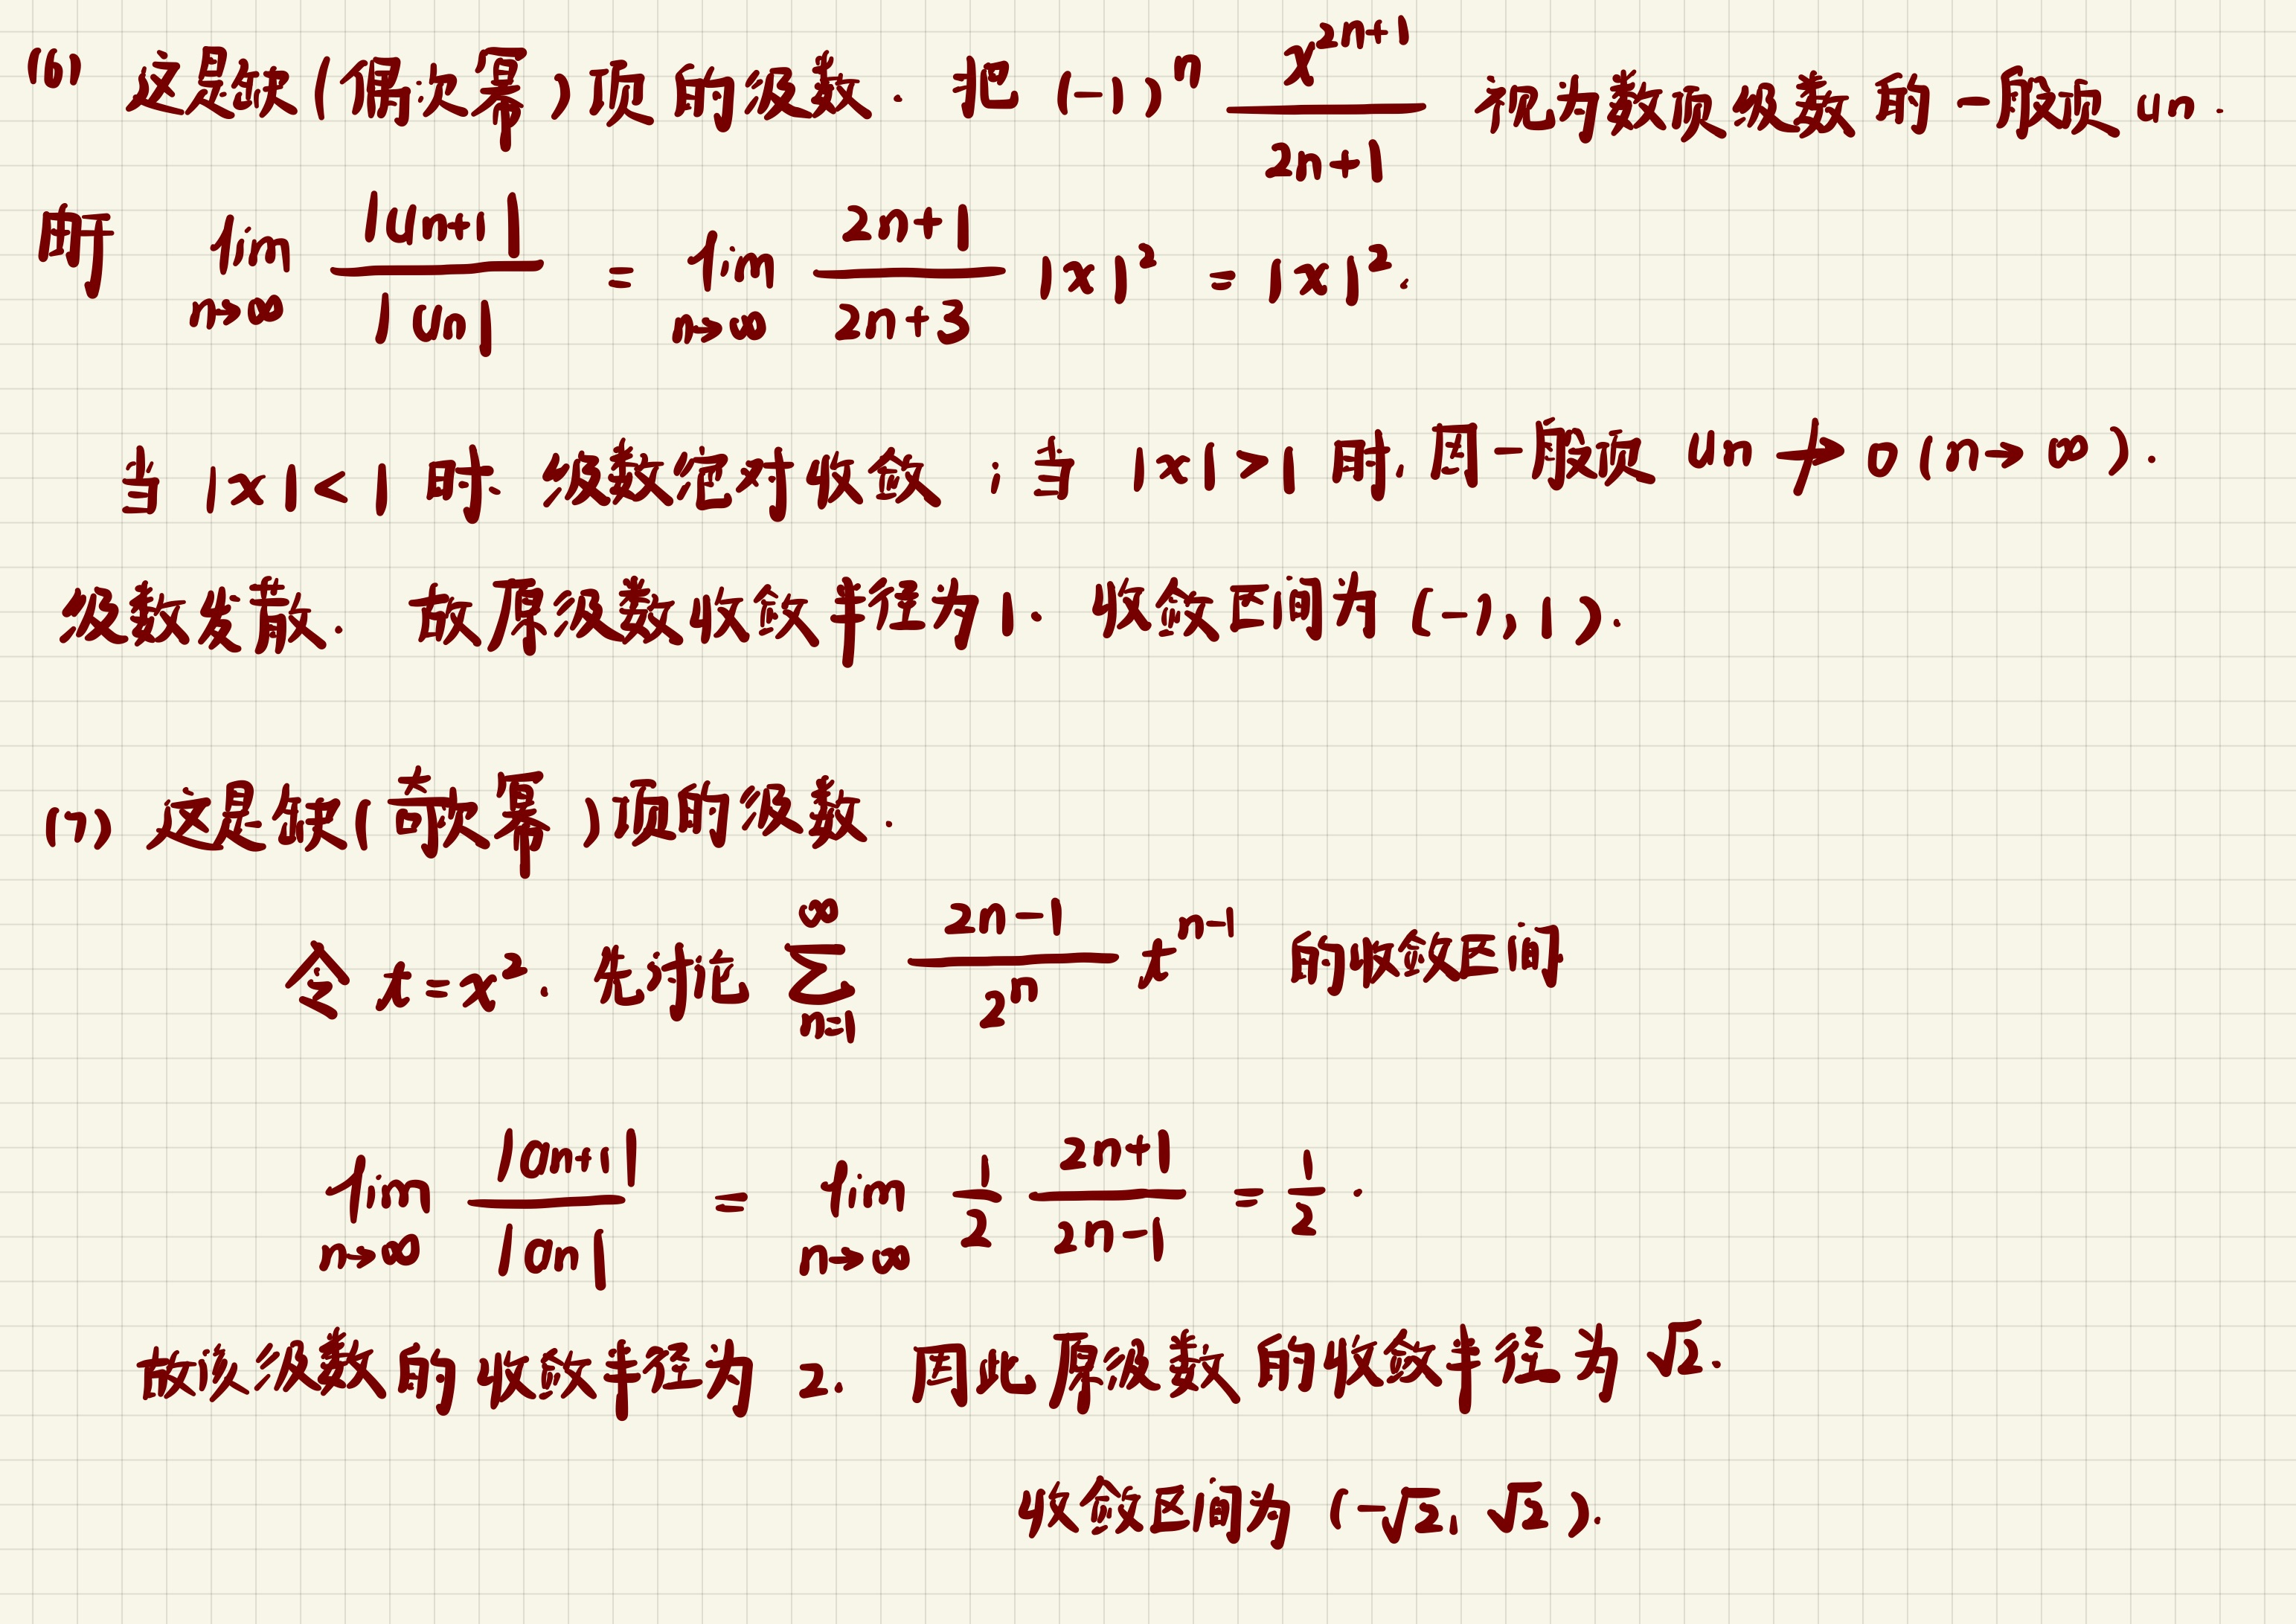 (6) 这是缺(偶次幂)项的级数. 把 (-1)^n x^{2n+1}/(2n+1) 视为数项级数的一般项 un.
由于 lim_{n→∞} |un+1|/|un| = lim_{n→∞} (2n+1)/(2n+3) |x|² = |x|².
当 |x|<1 时, 级数绝对收敛; 当 |x|>1 时, 因一般项 un ↛ 0 (n→∞).
级数发散. 故原级数收敛半径为 1. 收敛区间为 (-1, 1).
(7) 这是缺(奇次幂)项的级数.
令 t=x². 先讨论 ∑_{n=1}^{∞} (2n-1)/2^n t^{n-1} 的收敛区间
lim_{n→∞} |an+1|/|an| = lim_{n→∞} 1/2 (2n+1)/(2n-1) = 1/2.
故该级数的收敛半径为 2. 因此原级数的收敛半径为 √2.
收敛区间为 (-√2, √2).